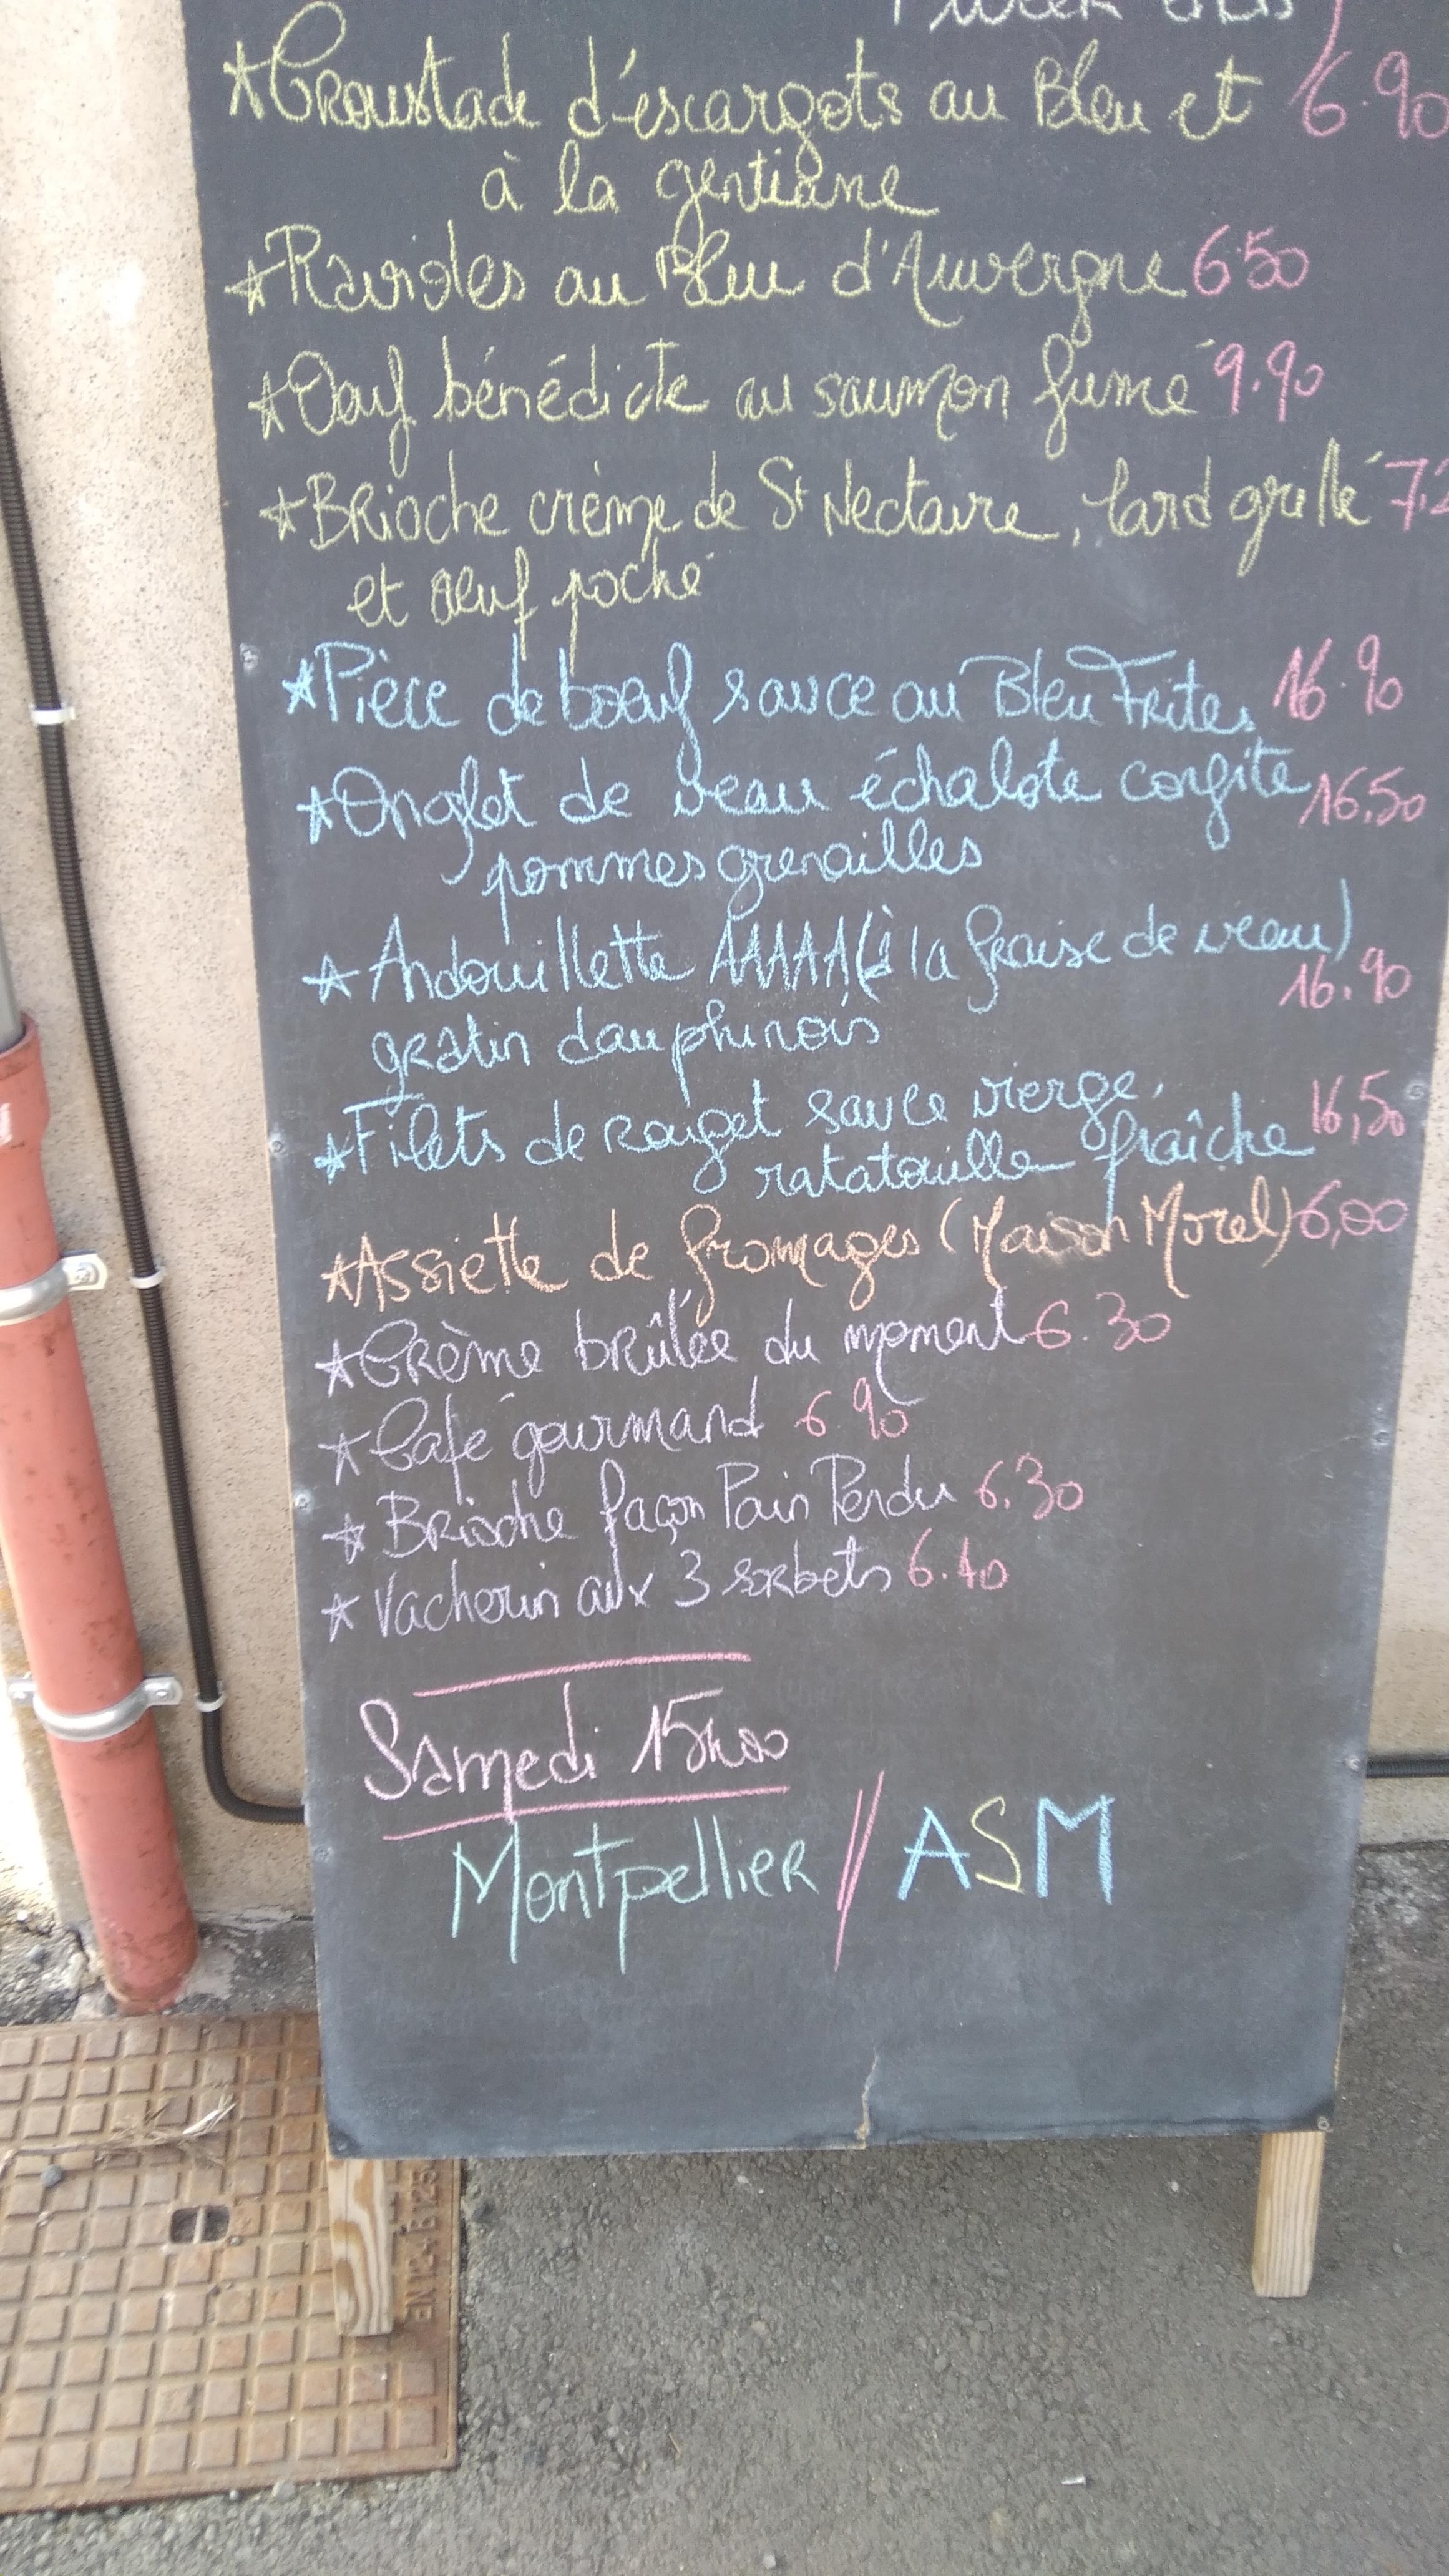 week ends)
★Croustade d'escargots au Bleu et 6.90
à la gentiane
★Ravioles au Bleu d'Auvergne 6.50
★Oeuf bénédicte au saumon fumé 9.90
★Brioche crème de St Nectaire, lard grillé 7,2
et œuf poché
★Pièce de boeuf sauce au Bleu Frites 16.90
★Onglet de veau échalote confite 16,50
pommes grenailles
★Andouillette AAAAA (à la fraise de veau)
16.90
gratin dauphinois
★Filets de rouget sauce vierge, 16,50
ratatouille fraîche
★Assiette de fromages (Maison Morel) 6,00
★Crème brûlée du moment 6.30
★Café gourmand 6.90
★Brioche façon Pain Perdu 6.30
★Vacherin aux 3 sorbets 6.40
Samedi 15h00
Montpellier // ASM
EN 124 B 125